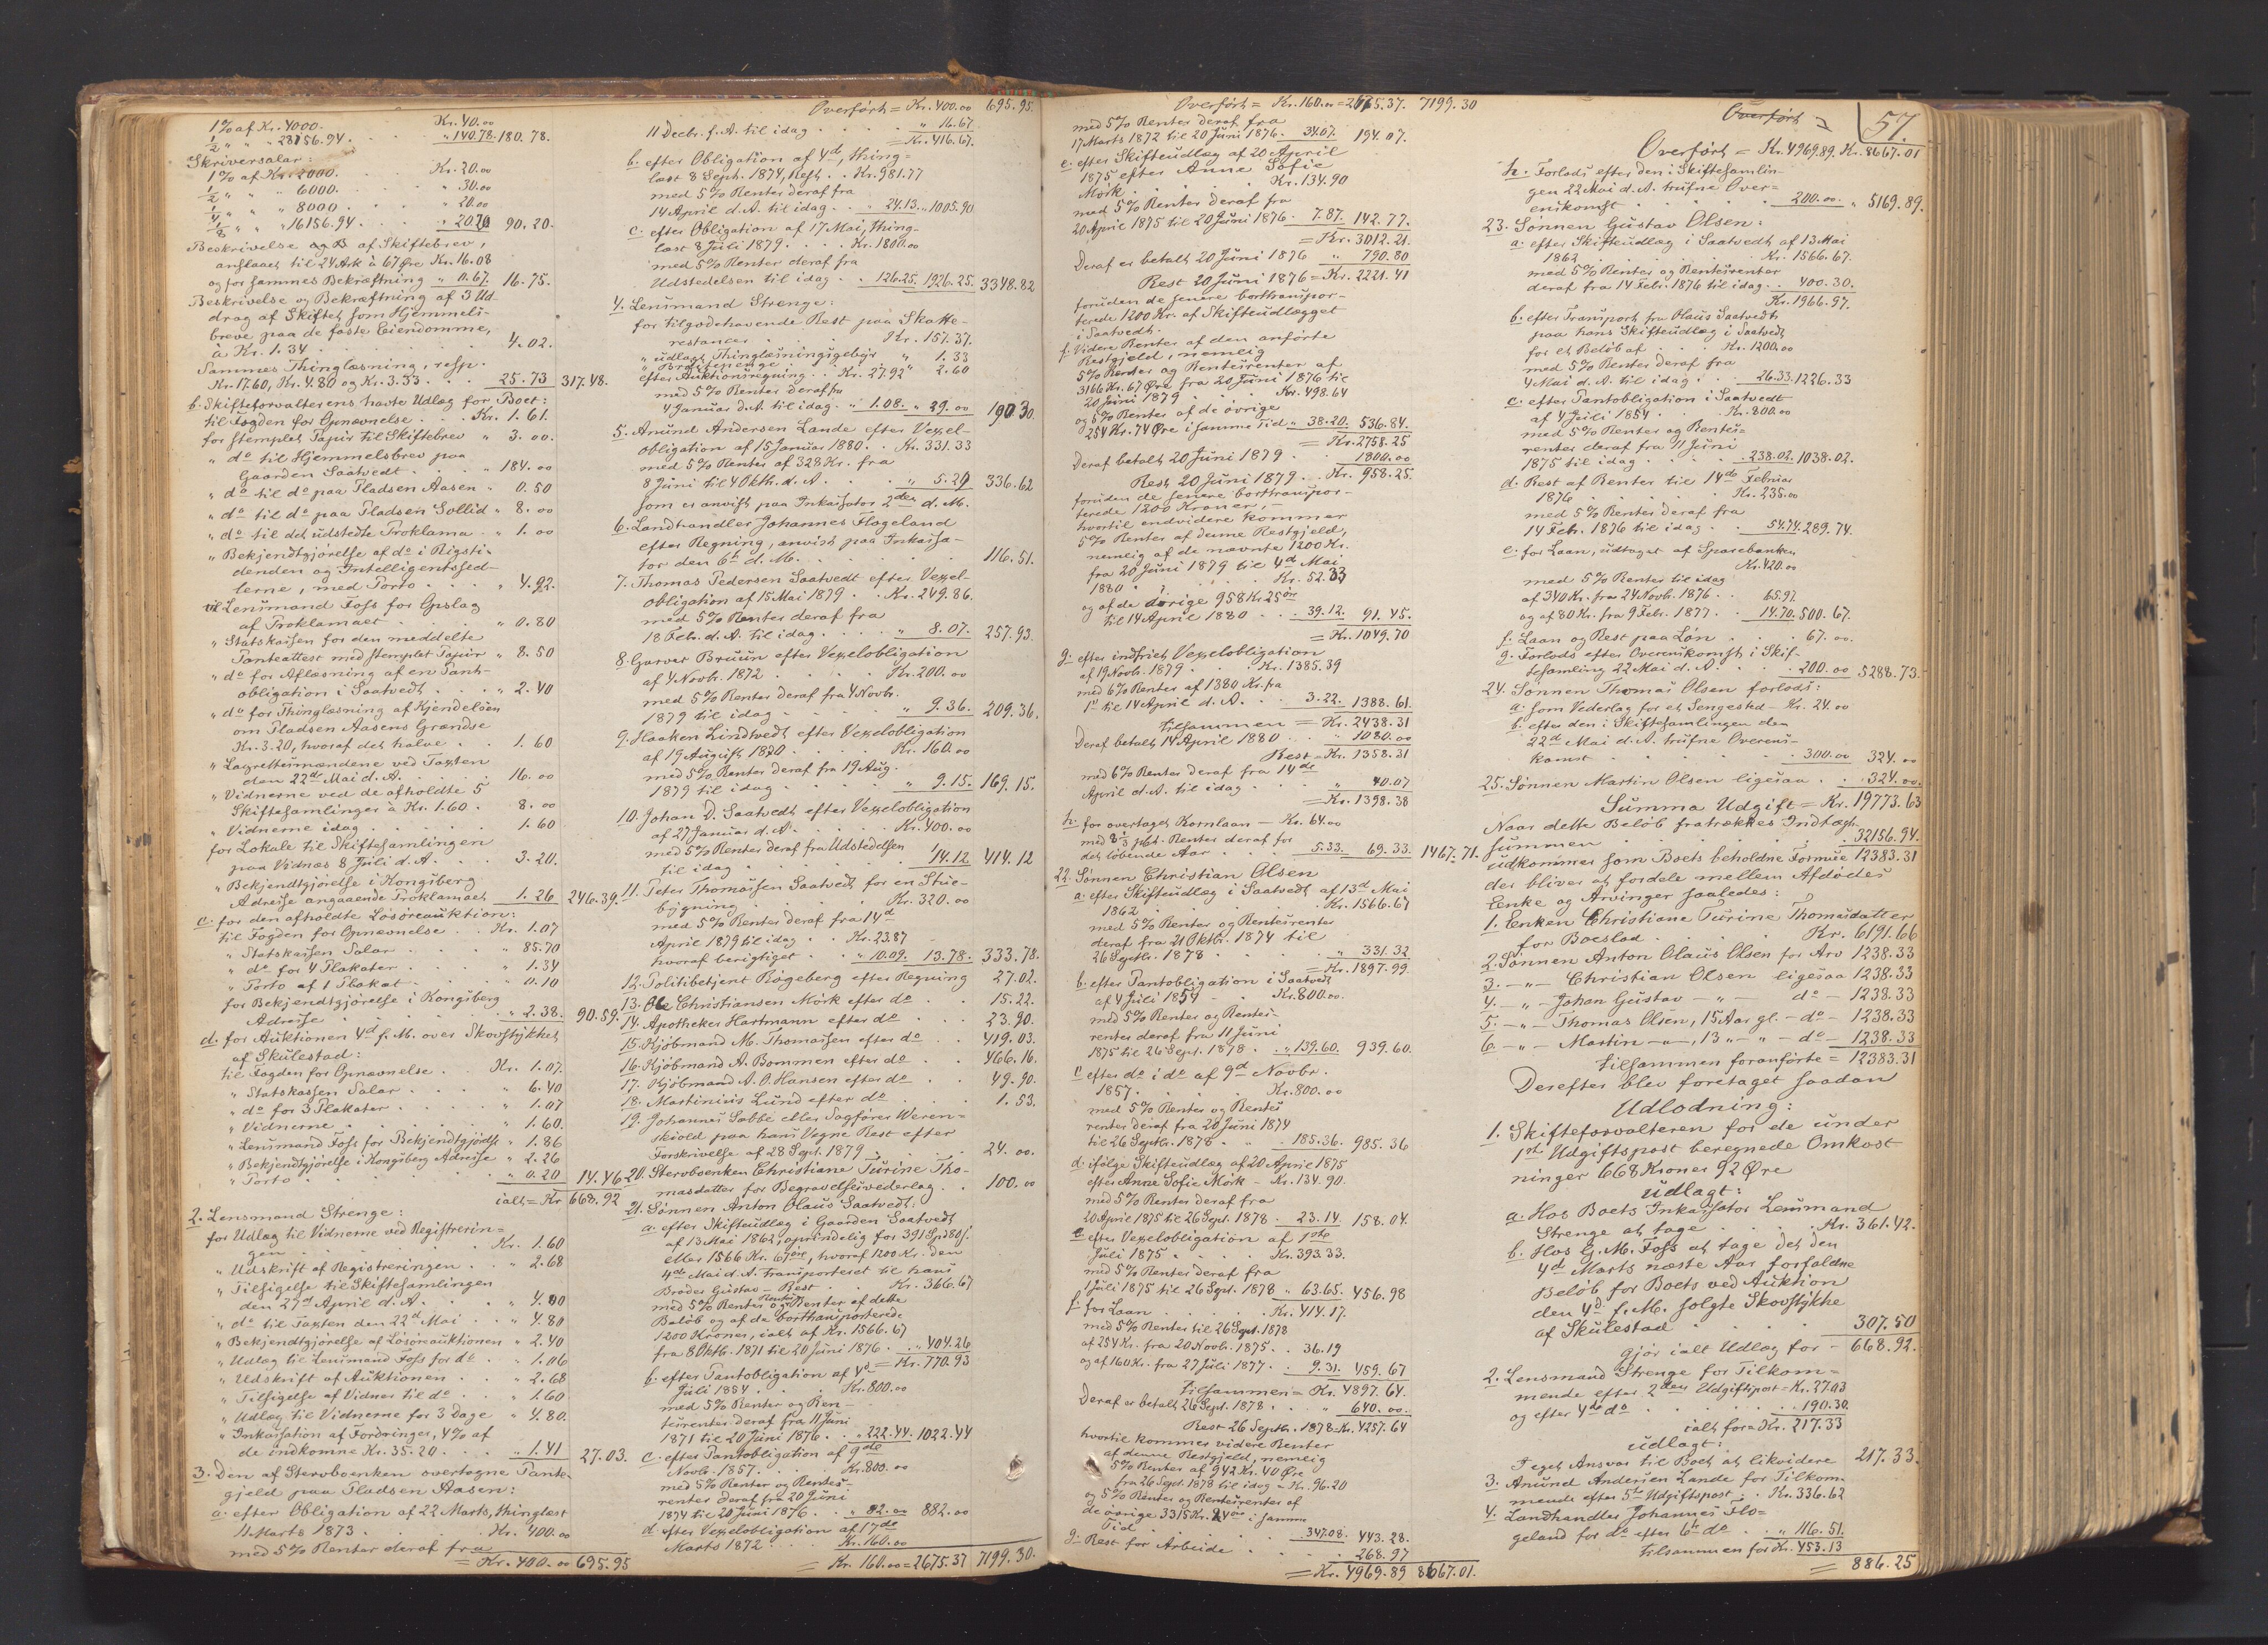 1% af Kr. 4000. Kr. 40.00
1/2 " " " 28156.94. . . " 140.78. 180.78.
Skriversalar:
1% af Kr. 2000. Kr. 20.00
1/2 " " " 6000. " 30.00
1/4 " " " 8000 " 20.00
1/8 " " " 16156.94. . . 20.20 90.20.
Beskrivelse og B af Skiftebrev,
anslaaet til 24 Ark à 67 Øre Kr. 16.08
og for sammes Bekræftning " 0.67. 16.75.
Beskrivelse og Bekræftning af 3 Ud-
drag af Skiftet som Hjemmels-
breve paa de faste Eiendomme,
à Kr. 1.34 . . . 4.02.
Sammes Thinglæsning, resp.
Kr. 17.60, Kr. 4.80 og Kr. 3.33 . . . 25.73 317.48.
b. Skifteforvalterens havte Udlæg for Boet:
til Fogden for Opnævnelse . Kr. 1.61.
for stemplet Papir til Skiftebrev " 3.00.
" do til Hjemmelsbrev paa
Gaarden Saatvedt . . . " 184.00
" do til do paa Pladsen Aasen " 0.50
" do til do paa Pladsen Sollid " 8.00
" do til det udstedte Proklama . " 1.00
" Bekjendtgjørelse af do i Rigsti-
denden og Intelligentssed-
lerne, med Porto . . . " 4.92.
til Lensmand Foss for Opslag
af Proklamaet . . . " 0.80
" Statskassen for den meddelte
Panteattest med stemplet Papir " 8.50
" do for Aflæsning af en Pant-
obligation i Saatvedt . . . " 2.40
" do for Thinglæsning af Kjendelsen
om Pladsen Aasens Grændse
Kr. 3.20, hvoraf det halve . . 1.60
" Lagrettesmændene ved Taxten
den 22de Mai d. A. . . . 16.00
" Vidnerne ved de afholdte 5
Skiftesamlinger à Kr. 1.60 . 8.00
" Vidnerne idag . . . 1.60
for Lokale til Skiftesamlingen
paa Vidnæs 8 Juli d. A. . . 3.20.
" Bekjendtgjørelse i Kongsberg
Adresse angaaende Proklamaet 1.26 246.39.
c. for den afholdte Løsøreauktion:
til Fogden for Opnævnelse . . Kr. 1.07
" Statskassen Salar . . . " 85.70
" do for 4 Plakater . . . " 1.34
" Porto af 1 Plakat . . . " 0.10
for Bekjendtgjørelse i Kongsberg
Adresse . . . " 2.38. 90.59.
d. for Auktionen 4d f. M. over Skovstykket
af Skulestad:
til Fogden for Opnævnelse . Kr. 1.07.
" Statskassen Salar . . . " 6.40
" do for 3 Plakater . . . " 1.07
" Vidnerne . . . " 1.60.
" Lensmand Foss for Bekjendtgjørelse " 1.86
" Bekjendtgjørelse i Kongsberg Adresse " 2.26
" Porto . . . " 0.20 14.46
ialt = Kr 668.92
2. Lensmand Strenge:
for Udlæg til Vidnerne ved Registrerin-
gen . . . Kr. 1.60
" Udskrift af Registreringen . . " 2.68
" Tilsigelse til Skiftesamlingen
den 27d April d. A. . . . " 4.00
" do til Taxten den 22d Mai . . " 4.80
" Bekjendtgjørelse af Løsøreauktionen " 2.40
" Udlæg til Lensmand Foss for do . " 1.06
" Udskrift af Auktionen . . " 2.68
" Tilsigelse af Vidner til do . . " 1.60
" Udlæg til Vidnerne for 3 Dage " 4.80.
" Inkassation af Fordringer, 4% af
de indkomne Kr. 35.20 . . . " 1.41 27.03.
3. Den af Stervboenken overtagne Pante-
gjeld paa Pladsen Aasen:
a. efter Obligation af 22 Marts, thinglæst
11 Marts 1873 . . . Kr. 400.00
med 5% Renter deraf fra
= Kr. 400.00 695.95
Overført = Kr. 400.00 695.95.
11 Decbr. f. A. til idag . . . " 16.67.
= Kr. 416.67.
b. efter Obligation af 4d, thing-
læst 8 Sept. 1874, Rest . . Kr. 981.77
med 5% Renter deraf fra
14 April d. A. til idag . . " 24.13. " 1005.90
c. efter Obligation af 17 Mai, thing-
læst 8 Juli 1879 . . . Kr. 1800.00
med 5% Renter deraf fra
Udstedelsen til idag . . 126.25. 1926.25. 3348.82
4. Lensmand Strenge:
for tilgodehavende Rest paa Skatte-
restancer . . . Kr. 157.37.
" udlagt Thinglæsningsgebyr " 1.33
" Brottepenge . . . " 2.60
efter Auktionsregning . . Kr. 27.92
med 5% Renter deraf fra
4 Januar d. A. til idag . " 1.08. " 29.00 190.30.
5. Anund Andersen Lande efter Vexel-
obligation af 15 Januar 1880 . Kr. 331.33
med 5% Renter af 328 Kr. fra
8 Juni til 4 Oktb. d. A. . . . " 5.29 336.62
som er anvist paa Inkassator 2den d. M.
6. Landhandler Johannes Flogeland
efter Regning, anvist paa Inkassa-
tor den 6te d. M. . . . 116.51.
7. Thomas Pedersen Saatvedt efter Vexel-
obligation af 15 Mai 1879 . . Kr. 249.86.
med 5% Renter deraf fra
18 Feb. d. A. til idag . . . " 8.07. 257.93.
8. Garver Bruun efter Vexelobligation
af 4 Novbr. 1872 . . . Kr. 200.00
med 5% Renter deraf fra 4 Novbr.
1879 til idag . . . " 9.36. 209.36.
9. Haaken Lindtvedt efter Vexelobligation
af 19 August 1820 . . . Kr. 160.00
med 5% Renter deraf fra 19 Aug.
1879 til idag . . . " 9.15. 169.15.
10. Johan D. Saatvedt efter Vexelobligation
af 27 Januar d. A. . . . Kr. 400.00
med 5% Renter deraf fra Udstedelsen
til idag . . . 14.12 414.12
11. Peter Thomassen Saatvedt for en Stue-
bygning . . . Kr. 320.00
med 5% Renter deraf fra 14d
April 1879 til idag . . Kr. 23.87
hvoraf berigtiget . . " 10.09. 13.78. 333.78.
12. Politibetjent Rogeberg efter Regning 27.02.
13. Ole Christiansen Mörk efter do . . 15.22.
14. Apotheker Hartmann efter do . . 23.90.
15. Kjøbmand M. Thomassen efter do . . 419.03.
16. Kjøbmand A. Bommen efter do . . 466.16.
17. Kjøbmand A. O. Hansen efter do . . 49.90.
18. Martinius Lund efter do . . . 1.53.
19. Johannes Sabbe eller Sagfører Weren-
skiold paa hans Vegne Rest efter
Forskrivelse af 28 Sept. 1879 . . . 24.00.
20. Stervboenken Christiane Turine Tho-
masdatter for Begravelsesvederlag . . 100.00
21. Sønnen Anton Olaus Saatvedt:
a. efter Skifteudlæg i Gaarden Saatvedt
af 13 Mai 1862, oprindelig for 391 Spd 80 s.
eller 1566 Kr. 67 Øre, hvoraf 1200 Kr. den
4de Mai d. A. transporteret til hans
Broder Gustav – Rest Kr. 366.67
med 5% Renter og Rentes Renter af dette
Beløb og af de borttransporterede
1200 Kroner, ialt af Kr. 1566.67
fra 8 Oktb. 1871 til 20 Juni 1876 . . " 404.26
= Kr. 770.93
b. efter Pantobligation af 4d
Juli 1854 . . . Kr. 800.00
med 5% Renter og Ren-
tesrenter deraf fra 11 Juni
1871 til 20 Juni 1876 . . " 222.44. 1022.44
c. efter Pantobligation af 9de
Novb. 1857 . . . Kr. 800.00
med 5% Renter og Rentes-
renter deraf fra 20 Juni
1874 til 20 Juni 1876 . . " 82.00 882.00
d. efter Vexelobligation af 17de
Marts 1872 . . . Kr. 160.00
= Kr. 160.00 = 2675.37 7199.30.
Overført = Kr. 160.00 = 2675.37. 7199.30
med 5% Renter deraf fra
17 Marts 1872 til 20 Juni 1876 . 34.07. 194.07.
e. efter Skifteudlæg af 20 April
1875 efter Anne Sofie
Mörk . . . Kr. 134.90
med 5% Renter deraf fra
20 April 1875 til 20 Juni 1876 . 7.87. 142.77.
= Kr. 3012.21.
Deraf er betalt 20 Juni 1876 " 790.80
Rest 20 Juni 1876 = Kr. 2221.41
foruden de senere borttranspor-
terede 1200 Kr. af Skifteudlægget
i Saatvedt.
f. Videre Renter af den anførte
Restgjeld, nemlig
5% Renter og Rentesrenter af
3166 Kr. 67 Øre fra 20 Juni 1876 til
20 Juni 1879 . . . Kr. 498.64
og 5% Renter af de øvrige
254 Kr. 74 Øre i samme Tid " 38.20. 536.84.
= Kr. 2758.25
Deraf betalt 20 Juni 1879 . . 1800.00
Rest 20 Juni 1879 . . Kr. 958.25.
foruden de senere borttranspor-
terede 1200 Kroner, –
hvortil endvidere kommer
5% Renter af denne Restgjeld,
nemlig af de nævnte 1200 Kr.
fra 20 Juni 1879 til 4d Mai
1880 . . . Kr. 52.33
og af de øvrige 958 Kr 25 Øre
til 14 April 1880 . . . 39.12. 91.45.
= Kr. 1049.70
g. efter indfriet Vexelobligation
af 19 Novbr. 1879 . . . Kr. 1385.39
med 6% Renter af 1380 Kr. fra
1st til 14 April d. A. . . 3.22. 1388.61.
tilsammen = Kr. 2438.31
Deraf betalt 14 April 1880 . . " 1080.00
Rest = Kr. 1358.31
med 6% Renter deraf fra 14de
April d. A. til idag . . . " 40.07
= Kr. 1398.38
h. for overtaget Kornlaan – Kr. 64.00
med 8 1/3 pCt. Renter deraf for
det løbende Aar . . . 5.33. 69.33 1467.71.
22. Sønnen Christian Olsen
a. efter Skifteudlæg i Saatvedt af 13d Mai
1862 . . . Kr. 1566.67
med 5% Renter og Rentesrenter
deraf fra 21 Oktbr. 1874 til
26 Septbr. 1878 . . . " 331.32
= Kr. 1897.99.
b. efter Pantobligation i Saatvedt
af 4 Juli 1854 – Kr. 800.00.
med 5% Renter og Rentes-
renter deraf fra 11 Juni
1875 til 26 Sept. 1878 . . " 139.60. 939.60.
c. efter do i do af 9d Novbr.
1857 . . . Kr. 800.00
med 5% Renter og Rentes
renter deraf fra 20 Juni 1874
til 26 Septbr. 1878 . . " 185.36. 985.36
d. ifølge Skifteudlæg af 20 April 1875
efter Anne Sofie Mörk – Kr. 134.90.
med 5% Renter deraf fra
20 April 1875 til 26 Sept. 1878 . 23.14. 158.04.
e. efter Vexelobligation af 1ste
Juli 1875 . . . Kr. 393.33.
med 5% Renter deraf fra
1 Juli 1875 til 26 Sept. 1878 " 63.65. 456.98
f. for Laan . . . Kr. 414.17.
med 5% Renter til 26 Sept. 1878
af 254 Kr. fra 20 Novb. 1875 . . 36.19
og af 160 Kr. fra 27 Juli 1877 . . 9.31. 459.67
tilsammen = Kr. 4897.64.
Deraf er betalt 26 Sept. 1878 . . " 640.00.
Rest 26 Septbr. 1878 = Kr. 4257.64
hvortil kommer videre Renter
af denne Restgjeld, nemlig
5% Renter af 942 Kr. 40 Øre
fra 26 Sept. 1878 til idag = Kr. 96.20
og 5% Renter og Rentesrenter af
de øvrige 3315 Kr. 24 Øre i samme
Tid . . . 347.08. 443.28.
g. Rest for Arbeide . . . 268.97
= Kr. 4969.89 8667.01.
Overført
57.
Overført = Kr. 4969.89. Kr. 8667.01
h. Forlods efter den i Skiftesamlin-
gen 22 Mai d. A. trufne Over-
enskomst . . . 200.00. " 5169.89.
23. Sønnen Gustav Olsen:
a. efter Skifteudlæg i Saatvedt af 13 Mai
1862 . . . Kr. 1566.67.
med 5% Renter og Rentesrenter
deraf fra 14 Febr. 1876 til idag . . 400.30.
Kr. 1966.97.
b. efter Transport fra Olaus Saatvedt
paa hans Skifteudlæg i Saatvedt
for et Beløb af . . . Kr. 1200.00
med 5% Renter deraf fra
4 Mai d. A. til idag . . . 26.33. 1226.33
c. efter Pantobligation i Saatvedt
af 4 Juli 1854 . . . Kr. 800.00
med 5% Renter og Rentes-
renter deraf fra 11 Juni
1875 til idag . . . 238.02. 1038.02.
d. Rest af Renter til 14de Februar
1876 . . . Kr. 235.00
med 5% Renter deraf fra
14 Febr. 1876 til idag . . 54.74. 289.74.
e. for Laan, udtaget af Sparebanken
Kr. 420.00
med 5% Renter til idag
af 340 Kr. fra 24 Novb. 1876 . . 65.97
og af 80 Kr. fra 9 Febr. 1877 . . 14.70. 500.67.
f. Laan og Rest paa Løn . . . 67.00.
g. Forlods efter Overenskomst i Skif-
tesamling 22 Mai d. A. . . . 200.00 5288.73.
24. Sønnen Thomas Olsen forlods:
a. som Vederlag for et Sengested – Kr. 24.00
b. efter den i Skiftesamlingen den
22d Mai d. A. trufne Overens-
komst . . . 300.00 324.00
25. Sønnen Martin Olsen ligesaa . . 324.00.
Summa Udgift = Kr. 19773.63
Naar dette Beløb fratrækkes Indtægts-
summen . . . 32156.94.
udkommer som Boets beholdne Formue 12383.31
der bliver at fordele mellem Afdødes
Enke og Arvinger saaledes:
1. Enken Christiane Turine Thomasdatter
for Boeslod . . . Kr. 6191.66
2. Sønnen Anton Olaus Olsen for Arv 1238.33
3. – " – Christian Olsen ligesaa 1238.33
4. – " – Johan Gustav – " – do – 1238.33
5. – " – Thomas Olsen, 15 Aar gl. – do – 1238.33
6. – " – Martin – " –, 13 " – " – do – 1238.33
tilsammen foranførte = 12383.31
Derefter blev foretaget saadan
Udlodning:
1. Skifteforvalteren for de under
1ste Udgiftspost beregnede Omkost-
ninger 668 Kroner 92 Øre
udlagt:
a. Hos Boets Inkassator Lensmand
Strenge at tage . . . Kr. 361.42.
b. Hos G. M. Foss at tage det den
4d Marts næste Aar forfaldne
Beløb for Boets ved Auktion
den 4d f. M. solgte Skovstykke
af Skulestad . . . 307.50
gjør ialt Udlæg for – 668.92.
2. Lensmand Strenge for Tilkom-
mende efter 2den Udgiftspost = Kr. 27.03
og efter 4de do . . . 190.30.
ialt for = Kr. 217.33
udlagt:
I eget Ansvar til Boet at likvidere 217.33.
3. Anund Andersen Lande for Tilkom-
mende efter 5te Udgiftspost . . Kr. 336.62
4. Landhandler Johannes Flo-
geland for do efter 6te do . . " 116.51.
tilsammen for Kr. 453.13
= 886.25